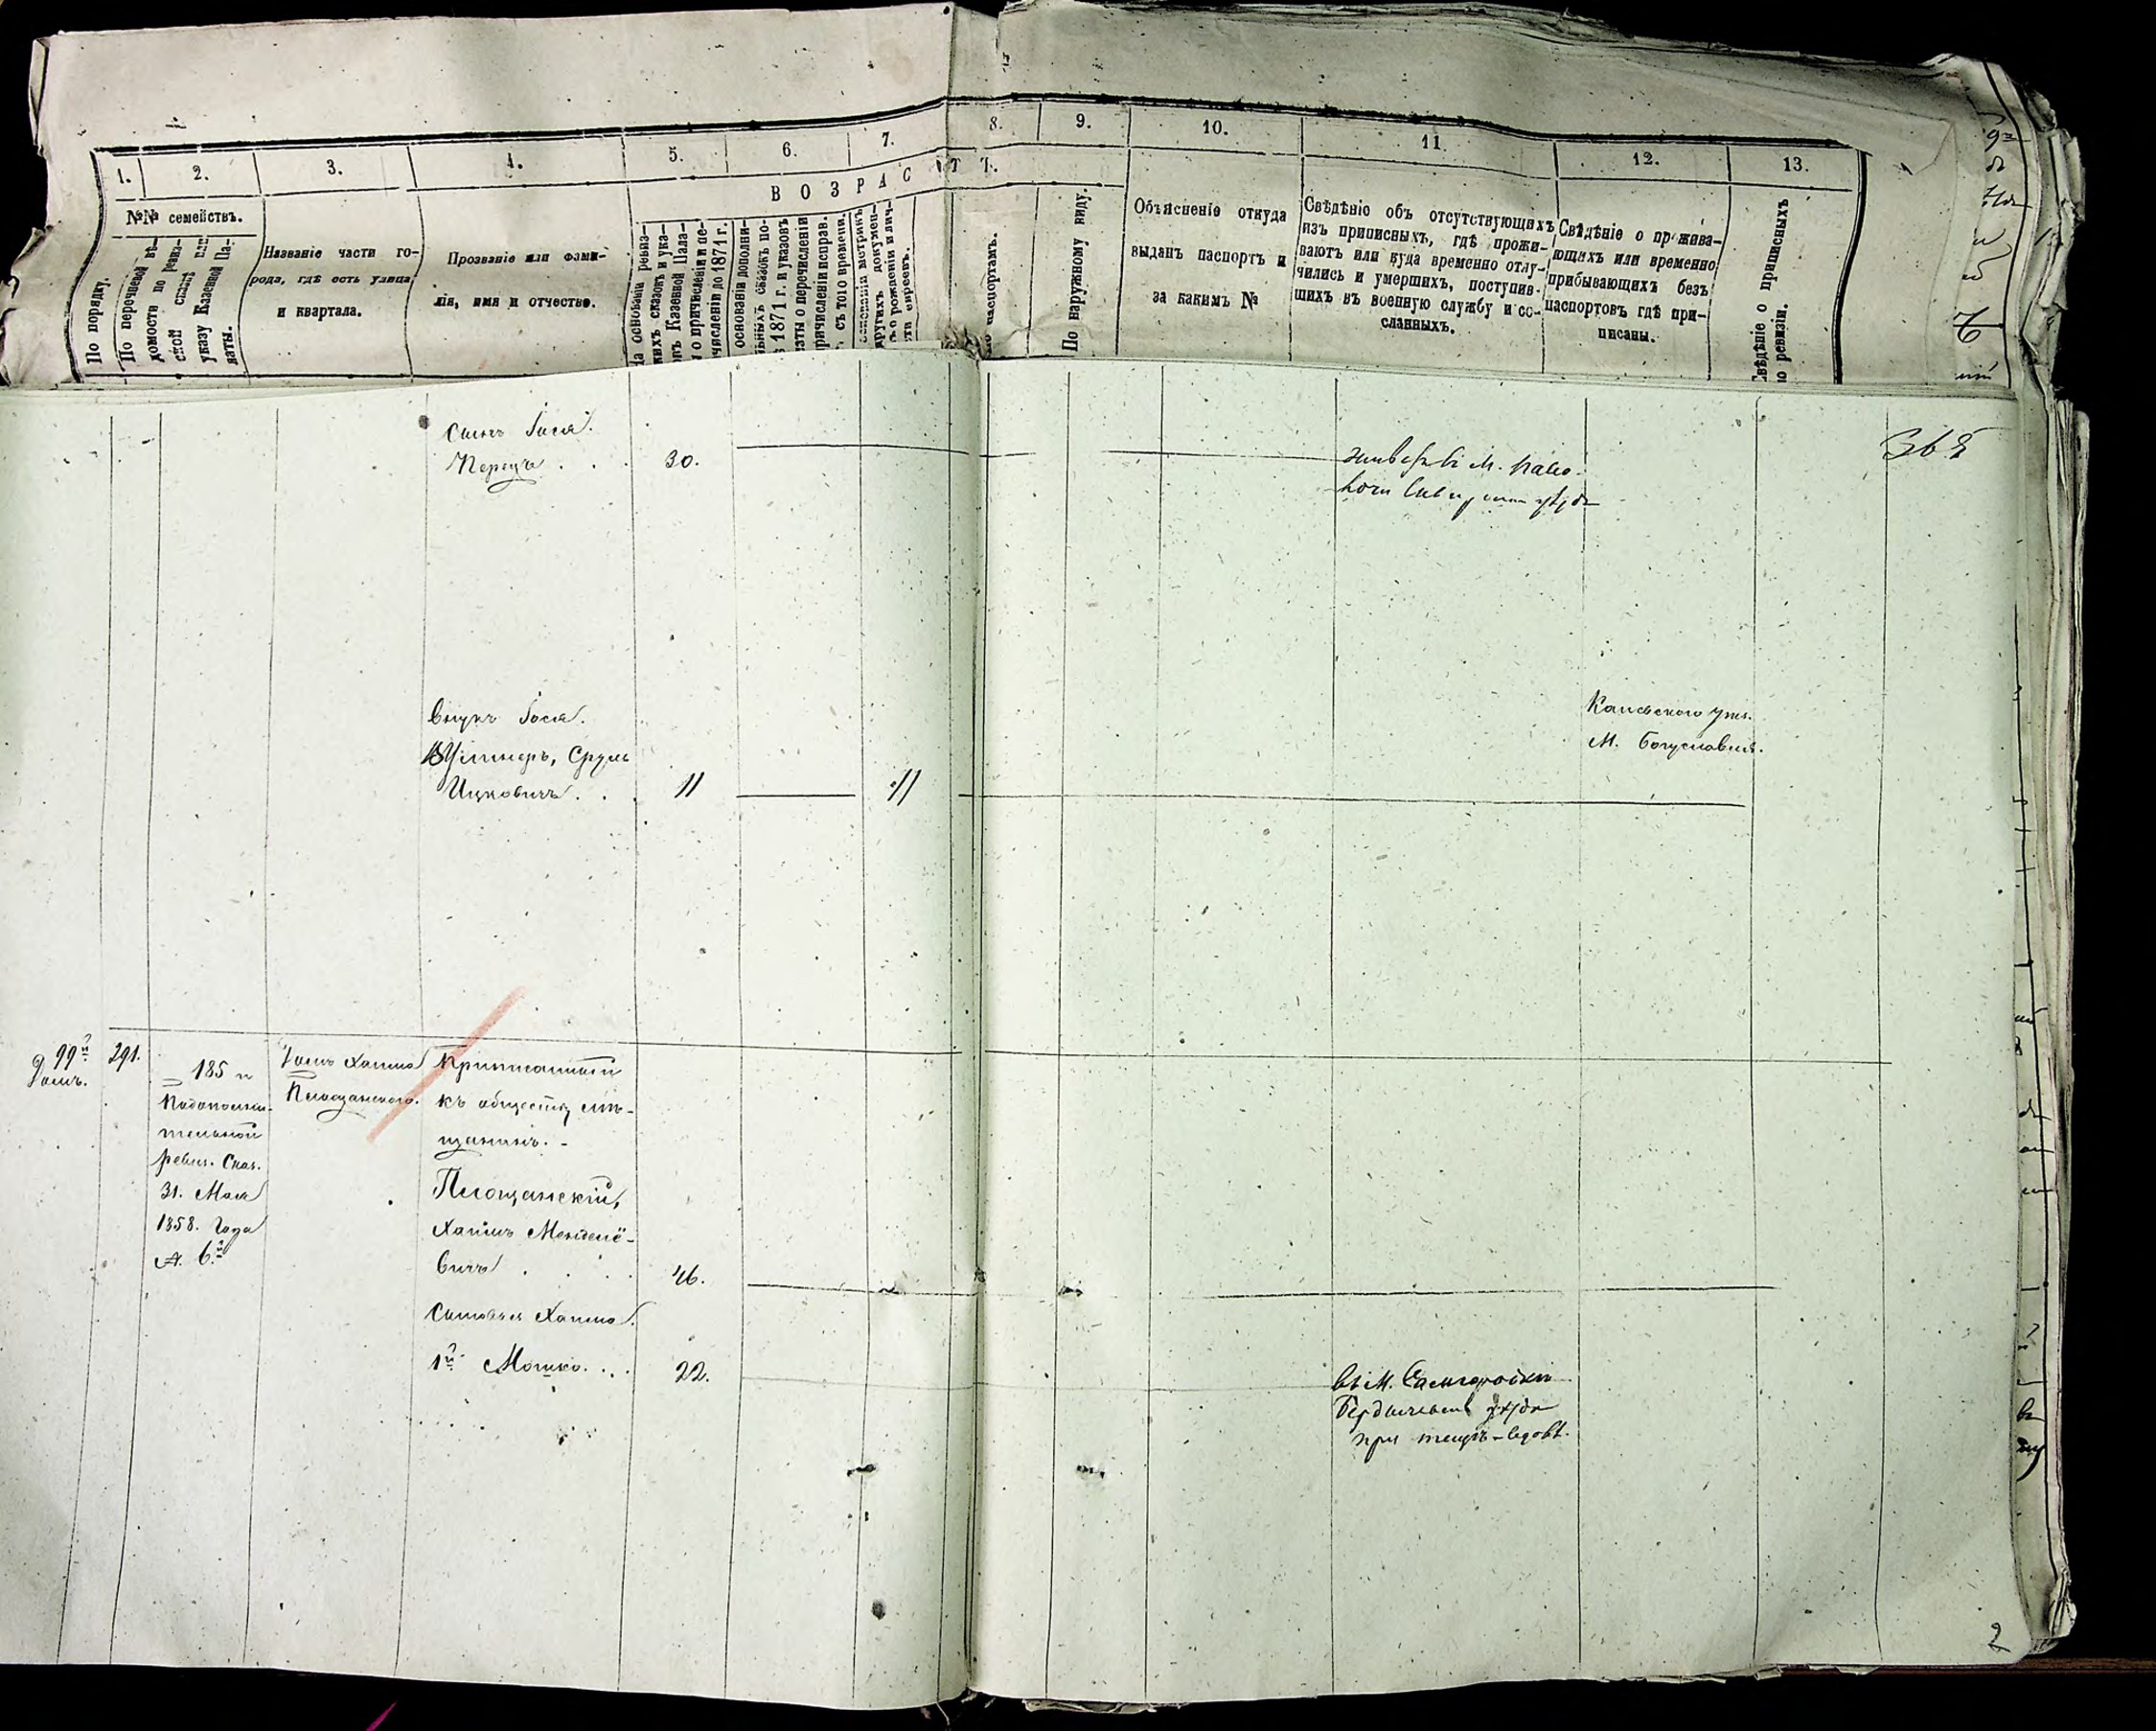 1.
2.
3.
4.
5.
6.
7.
8.
9.
10.
11.
12.
13.
№№ семействъ.
ВОЗРАСТ
По порядку.
По перечневой вѣ-
домости по ревиз-
ской сказкѣ или
указу Казеной Па-
латы.
Названіе части го-
рода, гдѣ есть улица
и квартала.
Прозваніе или фами-
лія, имя и отчество.
На основаніи ревиз-
скихъ сказокъ и ука-
зовъ Казеной Пала-
ты о причисленіи и пе-
речисленіи до 1871 г.
основаніи дополни-
тельныхъ сказокъ по-
1871 г. и указовъ
латы о перечисленіи
причисленіи исправ.
съ того времени.
основаніи метрикъ
другихъ докумен-
товъ о рожденіи и лич-
ности евреевъ.
паспортамъ.
По наружному виду.
Объясненіе откуда
выданъ паспортъ и
за какимъ №
Свѣдѣніе объ отсутствующихъ
изъ приписныхъ, гдѣ прожи-
ваютъ или куда временно отлу-
чились и умершихъ, поступив-
шихъ въ военную службу и со-
сланныхъ.
Свѣдѣніе о прожива-
ющихъ или временно
прибывающихъ безъ
паспортовъ гдѣ при-
писаны.
Свѣдѣніе о приписныхъ
по ревизіи.
Сынъ Іося.
Перецъ . . . 30.
живетъ въ М.
уѣзда
Внукъ Іося.
Сруль
Ицковичъ. . . 11 11
Каневского уѣз.
М. Богуславля.
99й
Домъ.
291.
185 и
Подополни-
тельной
ревиз. Сказ.
31. Мая
1858. Года
А. 6.й
Домъ Хаима
Площанского.
Приписанный
къ обществу мѣ-
щанинъ. -
Площанскій,
Хаимъ Менделе-
вичъ . . . 46.
Сыновья Хаима.
1й Мошко. . . 22.
въ М. Самгородки
Бердичевск уѣзда
при тещѣ-вдовѣ.
2